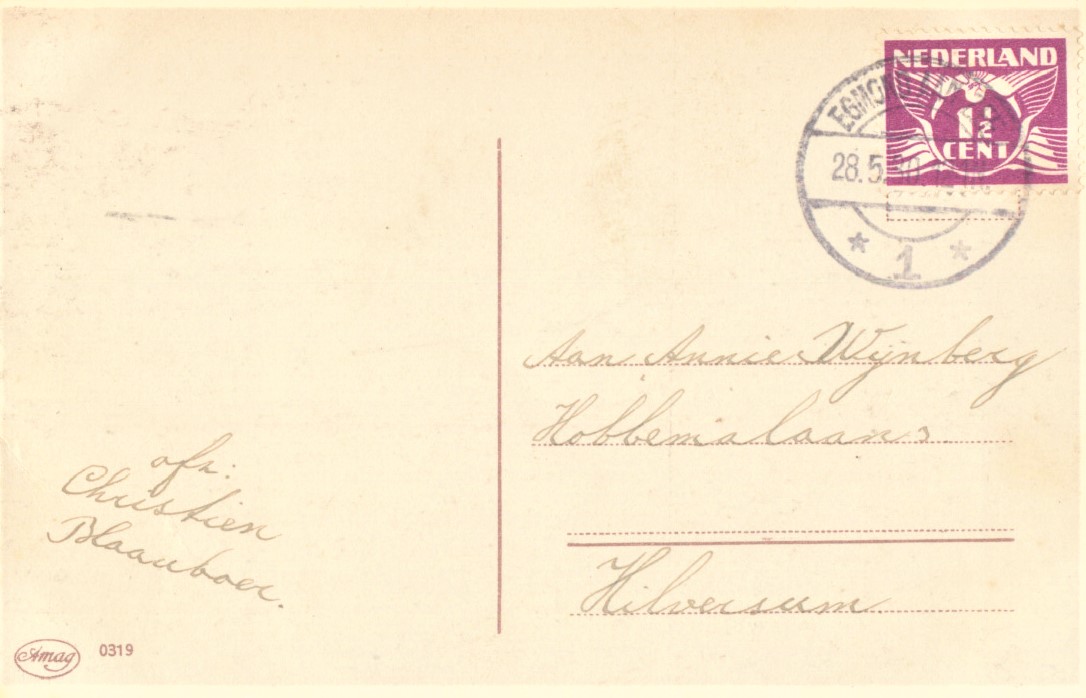 NEDERLAND
1½
CENT
EGMOND AAN
28.5.30.
* 1 *
Aan Annie Wijnberg
Hobbemalaan
Hilversum
afz:
Christien
Blaauboer.
Amag 0319